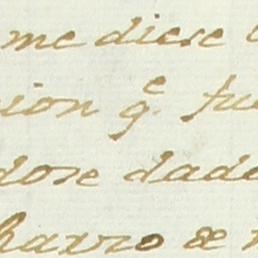 me diese
sion qe. fue
dose dado
harro de